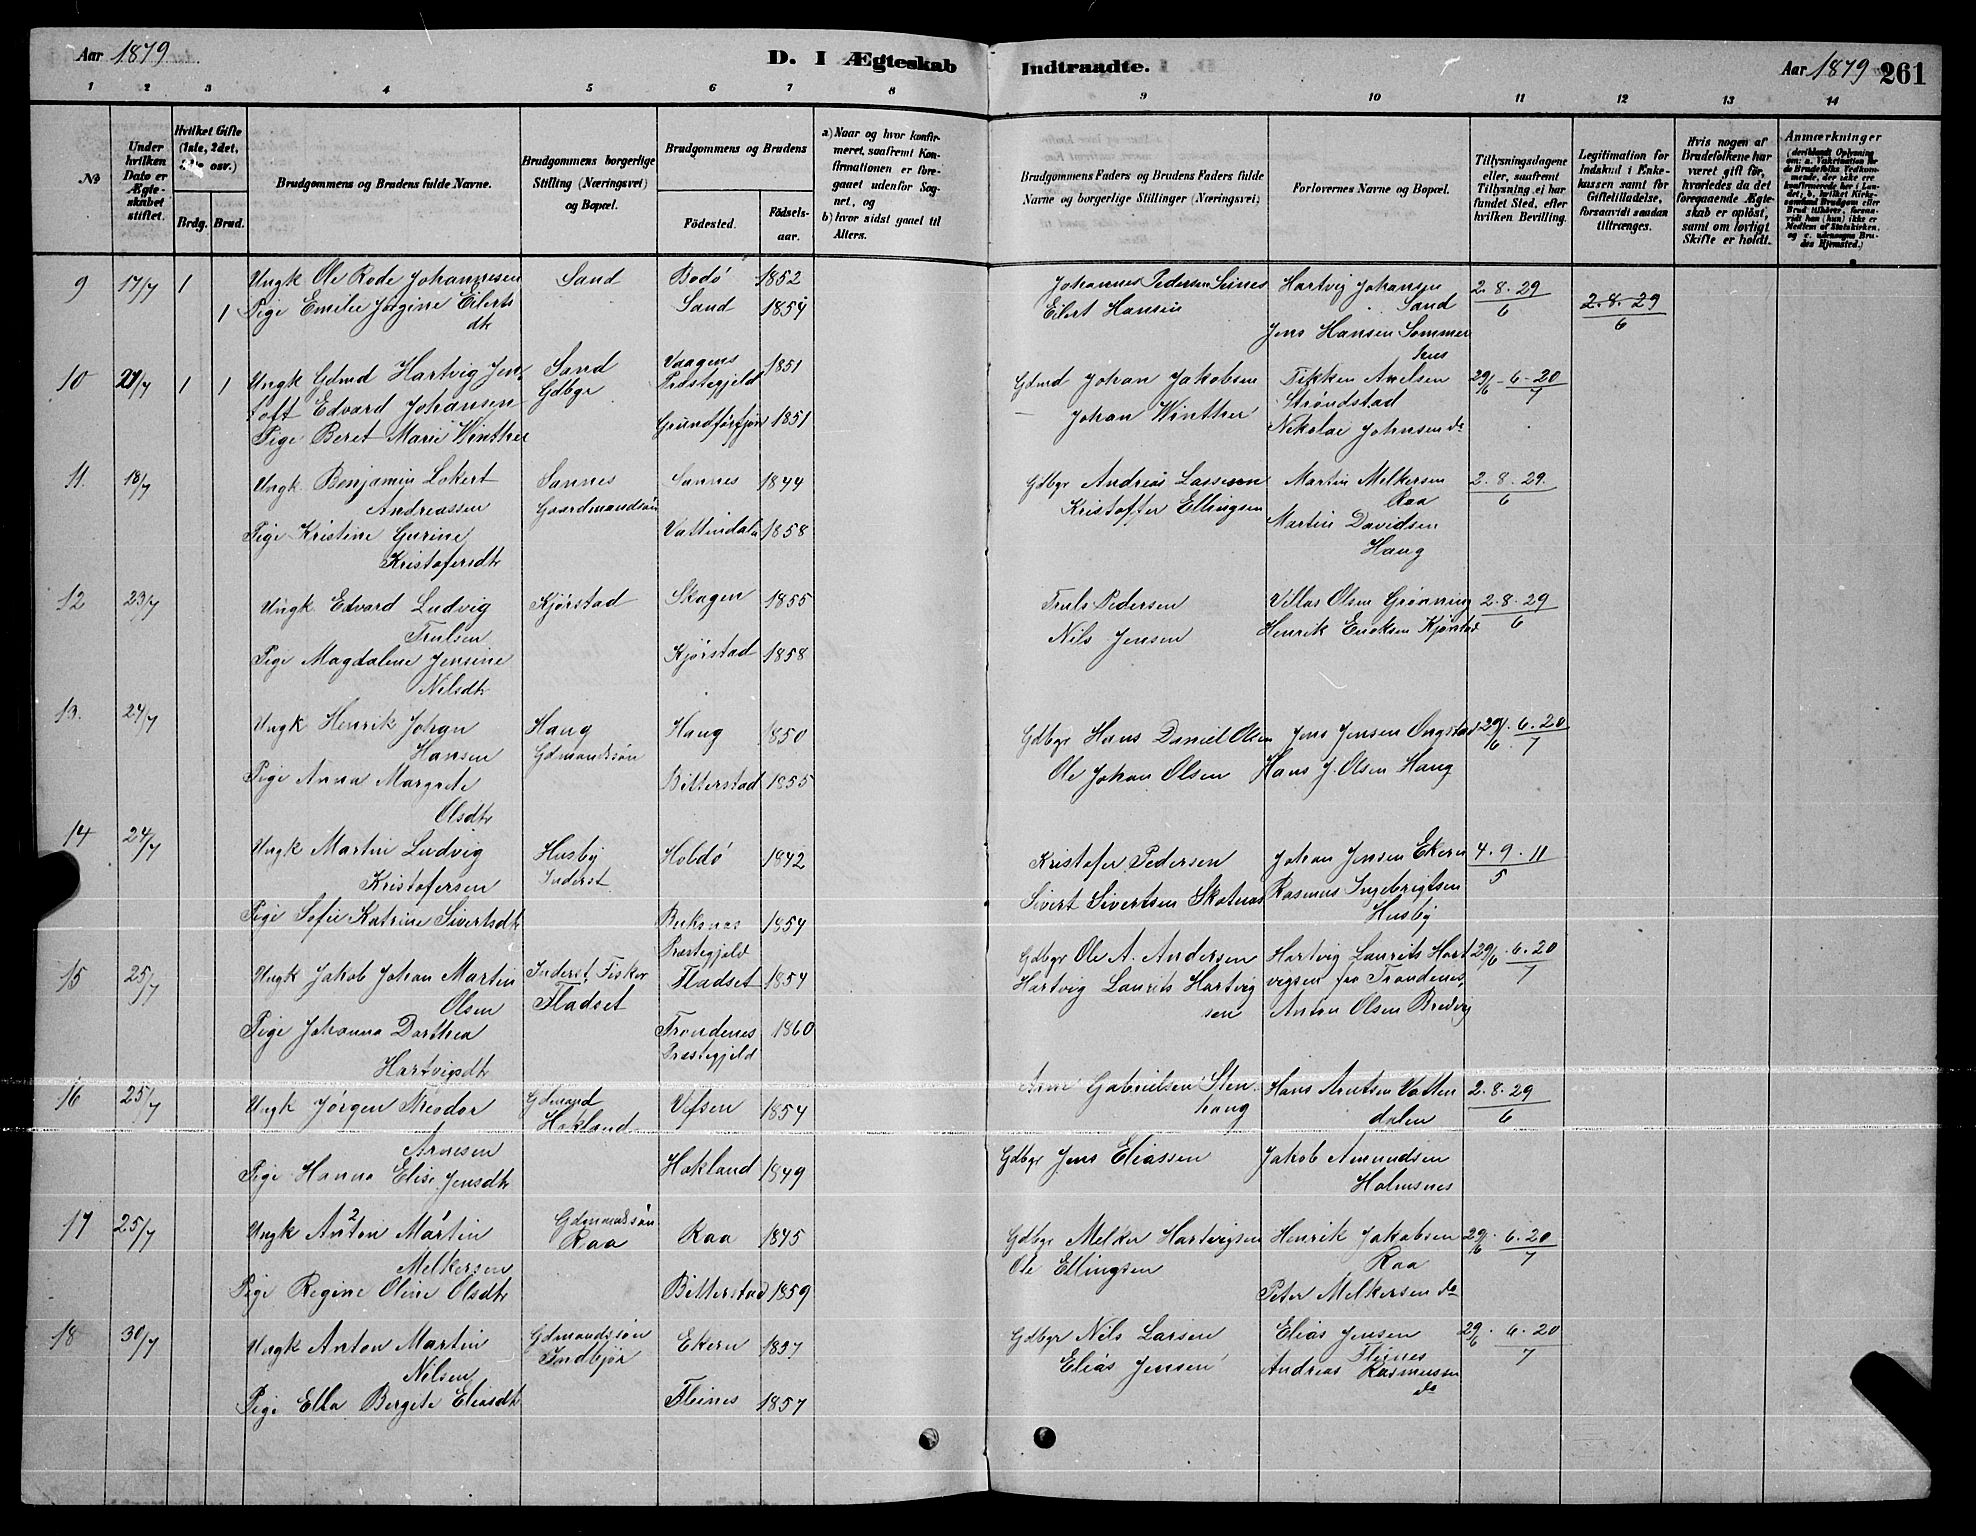 Aar 1879
D. I Ægteskab Indtraadte.
Aar 1879 261
1 2 3 4 5 6 7 8 9 10 11 12 13 14
№
Under hvilken Dato er Ægteskabet stiftet.
Hvilket Gifte (1ste, 2det, osv.)
Brdg. Brud.
Brudgommens og Brudens fulde Navne.
Brudgommens borgerlige Stilling (Næringsvei) og Bopæl.
Brudgommens og Brudens
Födested.
Födselsaar.
a) Naar og hvor konfirmeret, saafremt Konfirmationen er foregaaet udenfor Sognet, og
b) hvor sidst gaaet til Alters.
Brudgommens Faders og Brudens Faders fulde Navne og borgerlige Stillinger (Næringsvei)
Forlovernes Navne og Bopæl.
Tillysningsdagene eller, saafremt Tillysning ei har fundet Sted, efter hvilken Bevilling.
Legitimation for Indskud i Enkekassen samt for Giftetilladelse, forsaavidt saadan tiltrænges.
Hvis nogen af Brudefolkene har været gift för, hvorledes da det foregaaende Ægteskab er oplöst, samt om lovligt Skifte er holdt.
Anmærkninger
9 17/7 1 Ungk Ole Rode Johannesen Sand Bodö 1852 Johannes Pedersen Seines Hartvig Johansen 2. 8. 29
1 Pige Emelie Jörgine Eilerts Sand 1854 Eilert Hansen Sand 6 2. 8. 29
dtr Jens Hansen Sommer 6
hus
10 21/7 1 1 Ungk Gdmd Hartvig Jen Sand Vaagens 1851 Gdmd Johan Jakobsen Tikken Axelsen 29/6 - 6 - 20
toft Edvard Johansen Gdbgr Præstegjeld Johan Winther Ströndstad 7
Pige Beret Marie Winther Grundförfjor 1851 Nikolai Johnsen do
11. 18/7 Ungk Benjamin Lokert Sannes Sannes 1844 Gdbgr Andreas Lassesen Martin Melkersen 2. 8. 29.
Andreassen Gaardmandsön Kristoffer Ellingsen Raa 6
Pige Kristine Gurine Vattendale 1858 Martin Davidsen
Kristofersdtr Haug
12 23/7 Ungk Edvard Ludvig Kjörstad Skagen 1855 Truls Pedersen Villas Olsen Grönning 2. 8. 29
Trulsen Nils Jensen Henrik Eriksen Kjörstad 6
Pige Magdalene Jensine Kjörstad 1858
Nilsdtr
13. 24/7 Ungk Henrik Johan Haug Haug 1850 Gdbgr Hans Daniel Olsen Jens Jensen Ongstad 29/6. 6. 20
Hansen Gdmandssön Ole Johan Olsen Hans J. Olsen Haug 7
Pige Anna Margrete Bitterstad 1855
Olsdtr
14 24/7 Ungk Martin Ludvig Husby Hobdö 1842 Kristofer Pedersen Johan Jensen Ekern 4. 9. 11
Kristofersen Inderst Sivert Sivertsen Skotnes Rasmus Ingebrigtsen 5
Pige Sofie Katrine Sivertsdtr Buksnas 1854 Husby
Præstegjeld
15 25/7 Ungk Jakob Johan Martin Inderst Fisker Fladset 1854 Gdbgr Ole A. Andersen Hartvig Laurits Hart 29/6. 6. 20
Olsen Fladset Hartvig Laurits Hartvig vigsen fra Trondenes, 7
Pige Johanna Dorthea Trondenes 1860 sen Anton Olsen Bredvig
Hartvigsdtr Præstegjeld
16 25/7 Ungk Jörgen Theodor Gdmand Vefsen 1854 Arne Gabrielsen Sten Hans Arntsen Vatten 2. 8. 29
Arnesen Hokland haug dalen 6
Pige Hanna Elise Jensdtr Hokland 1849 Gdbgr Jens Eliassen Jakob Amundsen
Holmsnes
17 25/7 Ungk Anton 2 Martin 1 Gdmandssön Raa 1845 Gdbgr Melker Hartvigsen Henrik Jakobsen 29/6. 6. 20
Melkersen Raa Ole Ellingsen Raa 7
Pige Regine Oline Olsdtr Bitterstad 1859 Peter Melkersen do
18 30/7 Ungk Anton Martin Gdmandssön Ekern 1857 Gdbgr Nils Larsen Elias Jensen 29/6. 6. 20
Nilsen Indbjör Elias Jensen Fleines 7
Pige Ella Bergete Eliasdtr Fleines 1857 Andreas Rasmussen
do